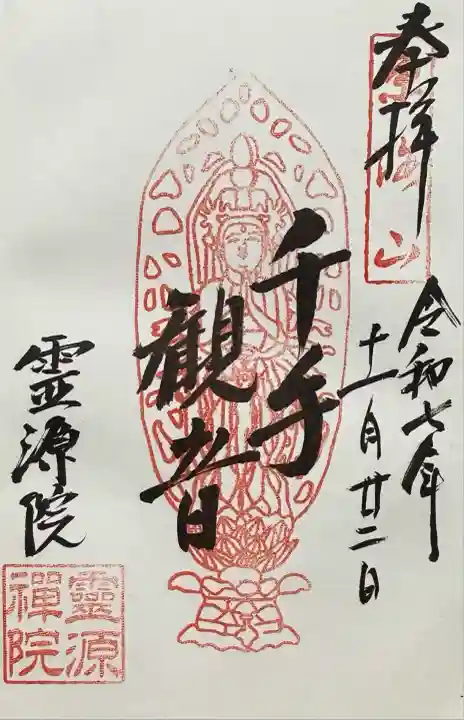 奉拝
山
令和七年
十一月廿二日
千手
観音
霊源院
靈源
禅院